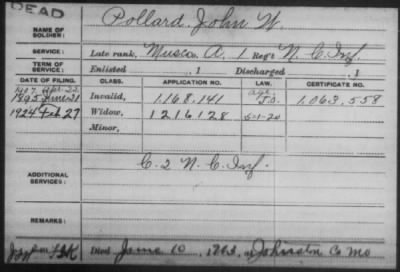 DEAD
NAME OF SOLDIER: Pollard, John W.
SERVICE: Late rank, Musc. A. 1 Reg't N. C. Inf.
TERM OF SERVICE: Enlisted , 1 Discharged , 1
DATE OF FILING. CLASS. APPLICATION NO. LAW. CERTIFICATE NO.
1895 June 21 Invalid, 1.168.141 1.063.558
1924 Feb 27 Widow, 1216128 5-1-20
Minor,
ADDITIONAL SERVICES: C. 2 N. C. Inf.
REMARKS:
Died June 10, 1923, at Johnston Co Mo